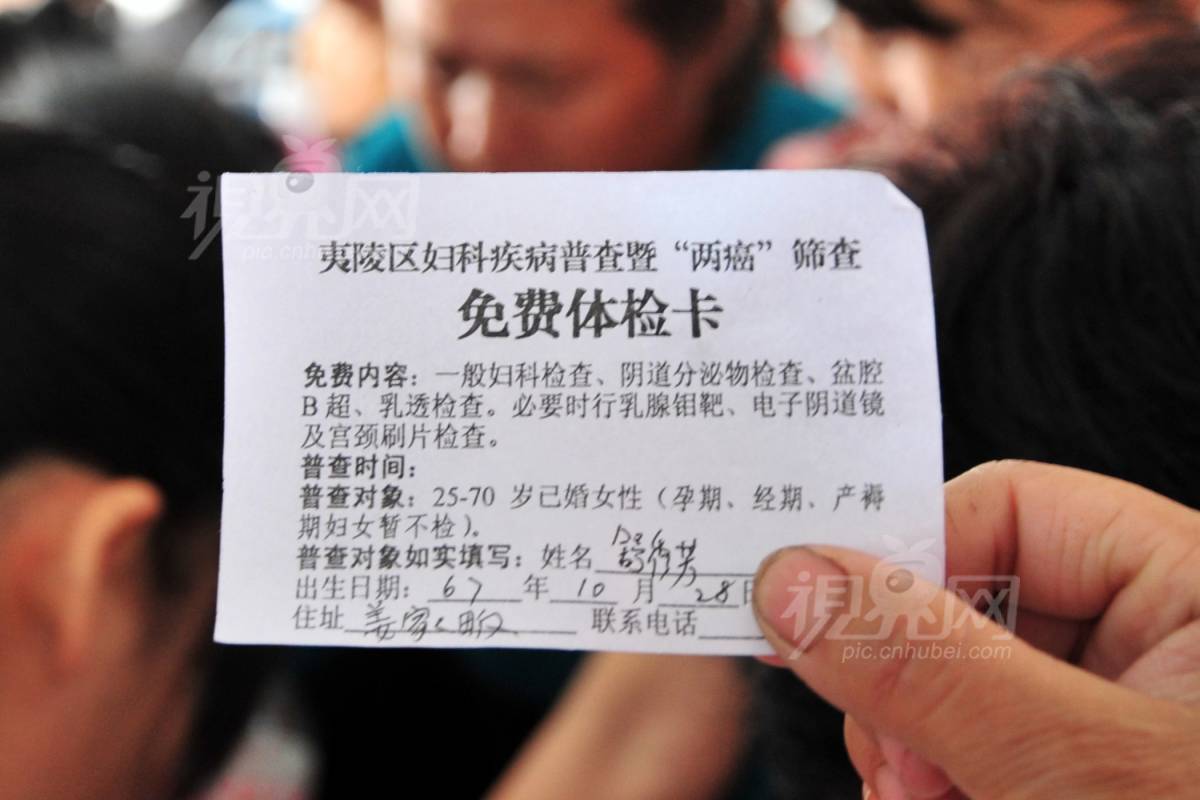 夷陵区妇科疾病普查暨“两癌”筛查
免费体检卡
免费内容：一般妇科检查、阴道分泌物检查、盆腔
B超、乳透检查。必要时行乳腺钼靶、电子阴道镜
及宫颈刷片检查。
普查时间：
普查对象：25-70 岁已婚女性（孕期、经期、产褥
期妇女暂不检）。
普查对象如实填写：姓名
出生日期：67年10月28日
住址姜家畈 联系电话
视界网
pic.cnhubei.com
视界网
pic.cnhu